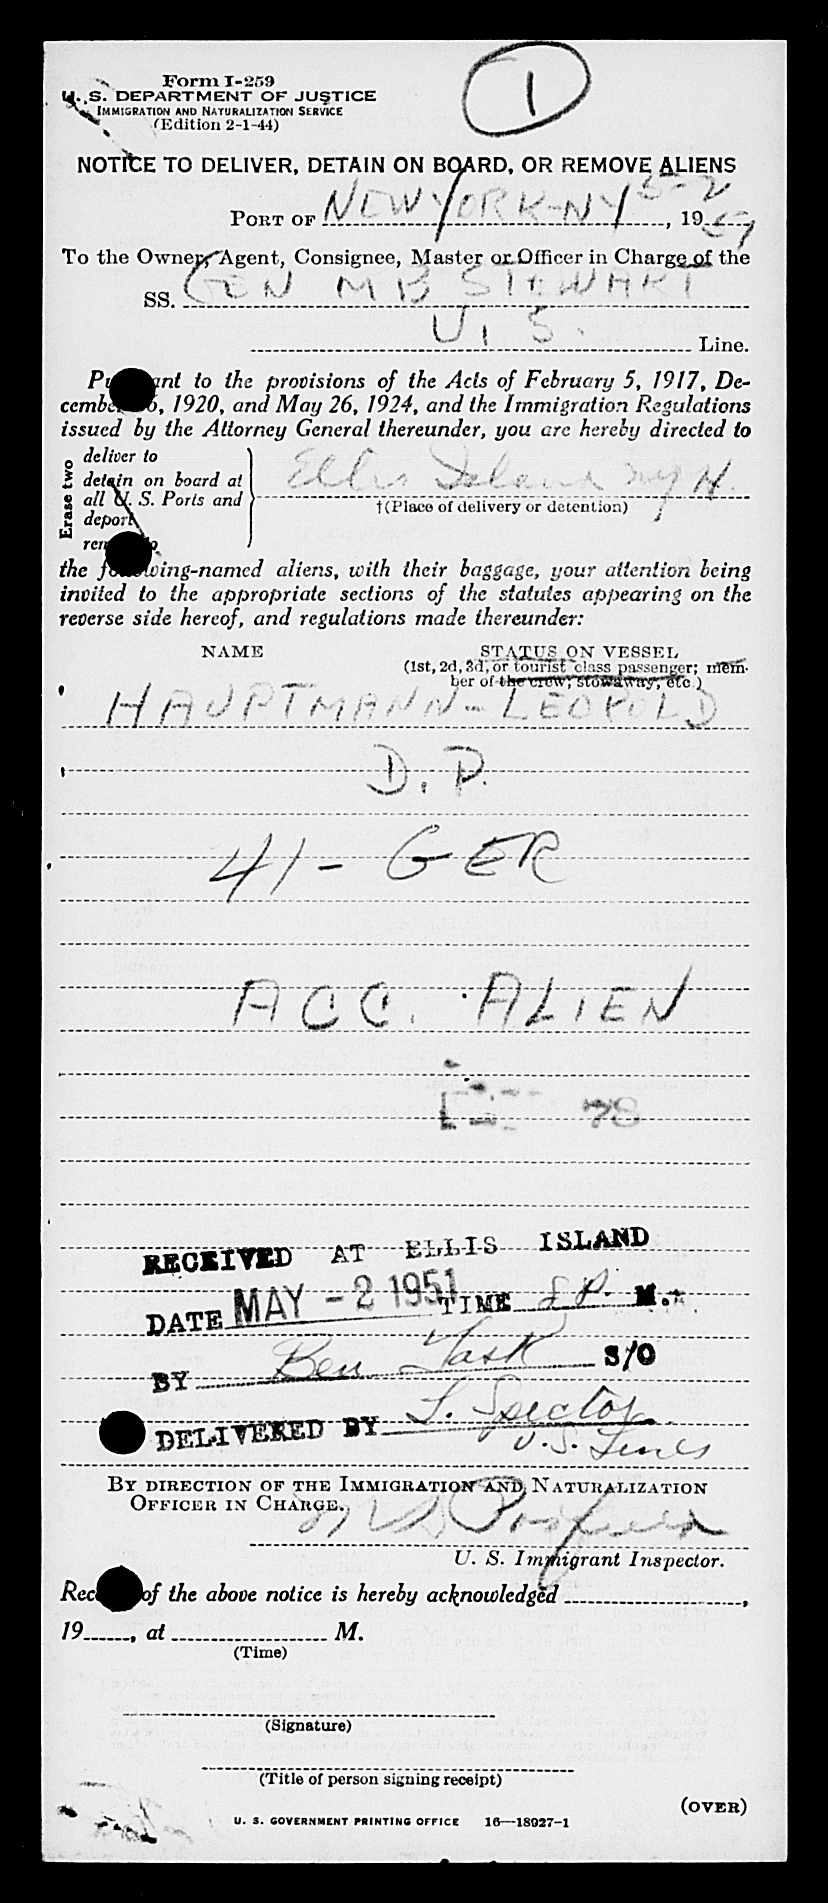 1
Form I-259
U. S. DEPARTMENT OF JUSTICE
IMMIGRATION AND NATURALIZATION SERVICE
(Edition 2-1-44)
NOTICE TO DELIVER, DETAIN ON BOARD, OR REMOVE ALIENS
PORT OF NEW YORK-NY 5-2, 1951
To the Owner, Agent, Consignee, Master or Officer in Charge of the
SS. GEN M B STEWART
U. S. Line.
Pursuant to the provisions of the Acts of February 5, 1917, De-
cember 26, 1920, and May 26, 1924, and the Immigration Regulations
issued by the Attorney General thereunder, you are hereby directed to
Erase two
deliver to
detain on board at
all U. S. Ports and
deport
remove to
Ellis Island NYH.
†(Place of delivery or detention)
the following-named aliens, with their baggage, your attention being
invited to the appropriate sections of the statutes appearing on the
reverse side hereof, and regulations made thereunder:
NAME STATUS ON VESSEL
(1st, 2d, 3d, or tourist class passenger; mem-
ber of the crew; stowaway, etc.)
HAUPTMANN - LEOPOLD
D. P.
41 - GER
ACC. ALIEN
78
RECEIVED AT ELLIS ISLAND
DATE MAY - 2 1951 TIME 8 P. M.
BY Ben Task S/O
DELIVERED BY L. Spector
U.S. Lines
BY DIRECTION OF THE IMMIGRATION AND NATURALIZATION
OFFICER IN CHARGE.
U. S. Immigrant Inspector.
Receipt of the above notice is hereby acknowledged ,
19 , at M.
(Time)
(Signature)
(Title of person signing receipt)
(OVER)
U. S. GOVERNMENT PRINTING OFFICE 16—18927-1